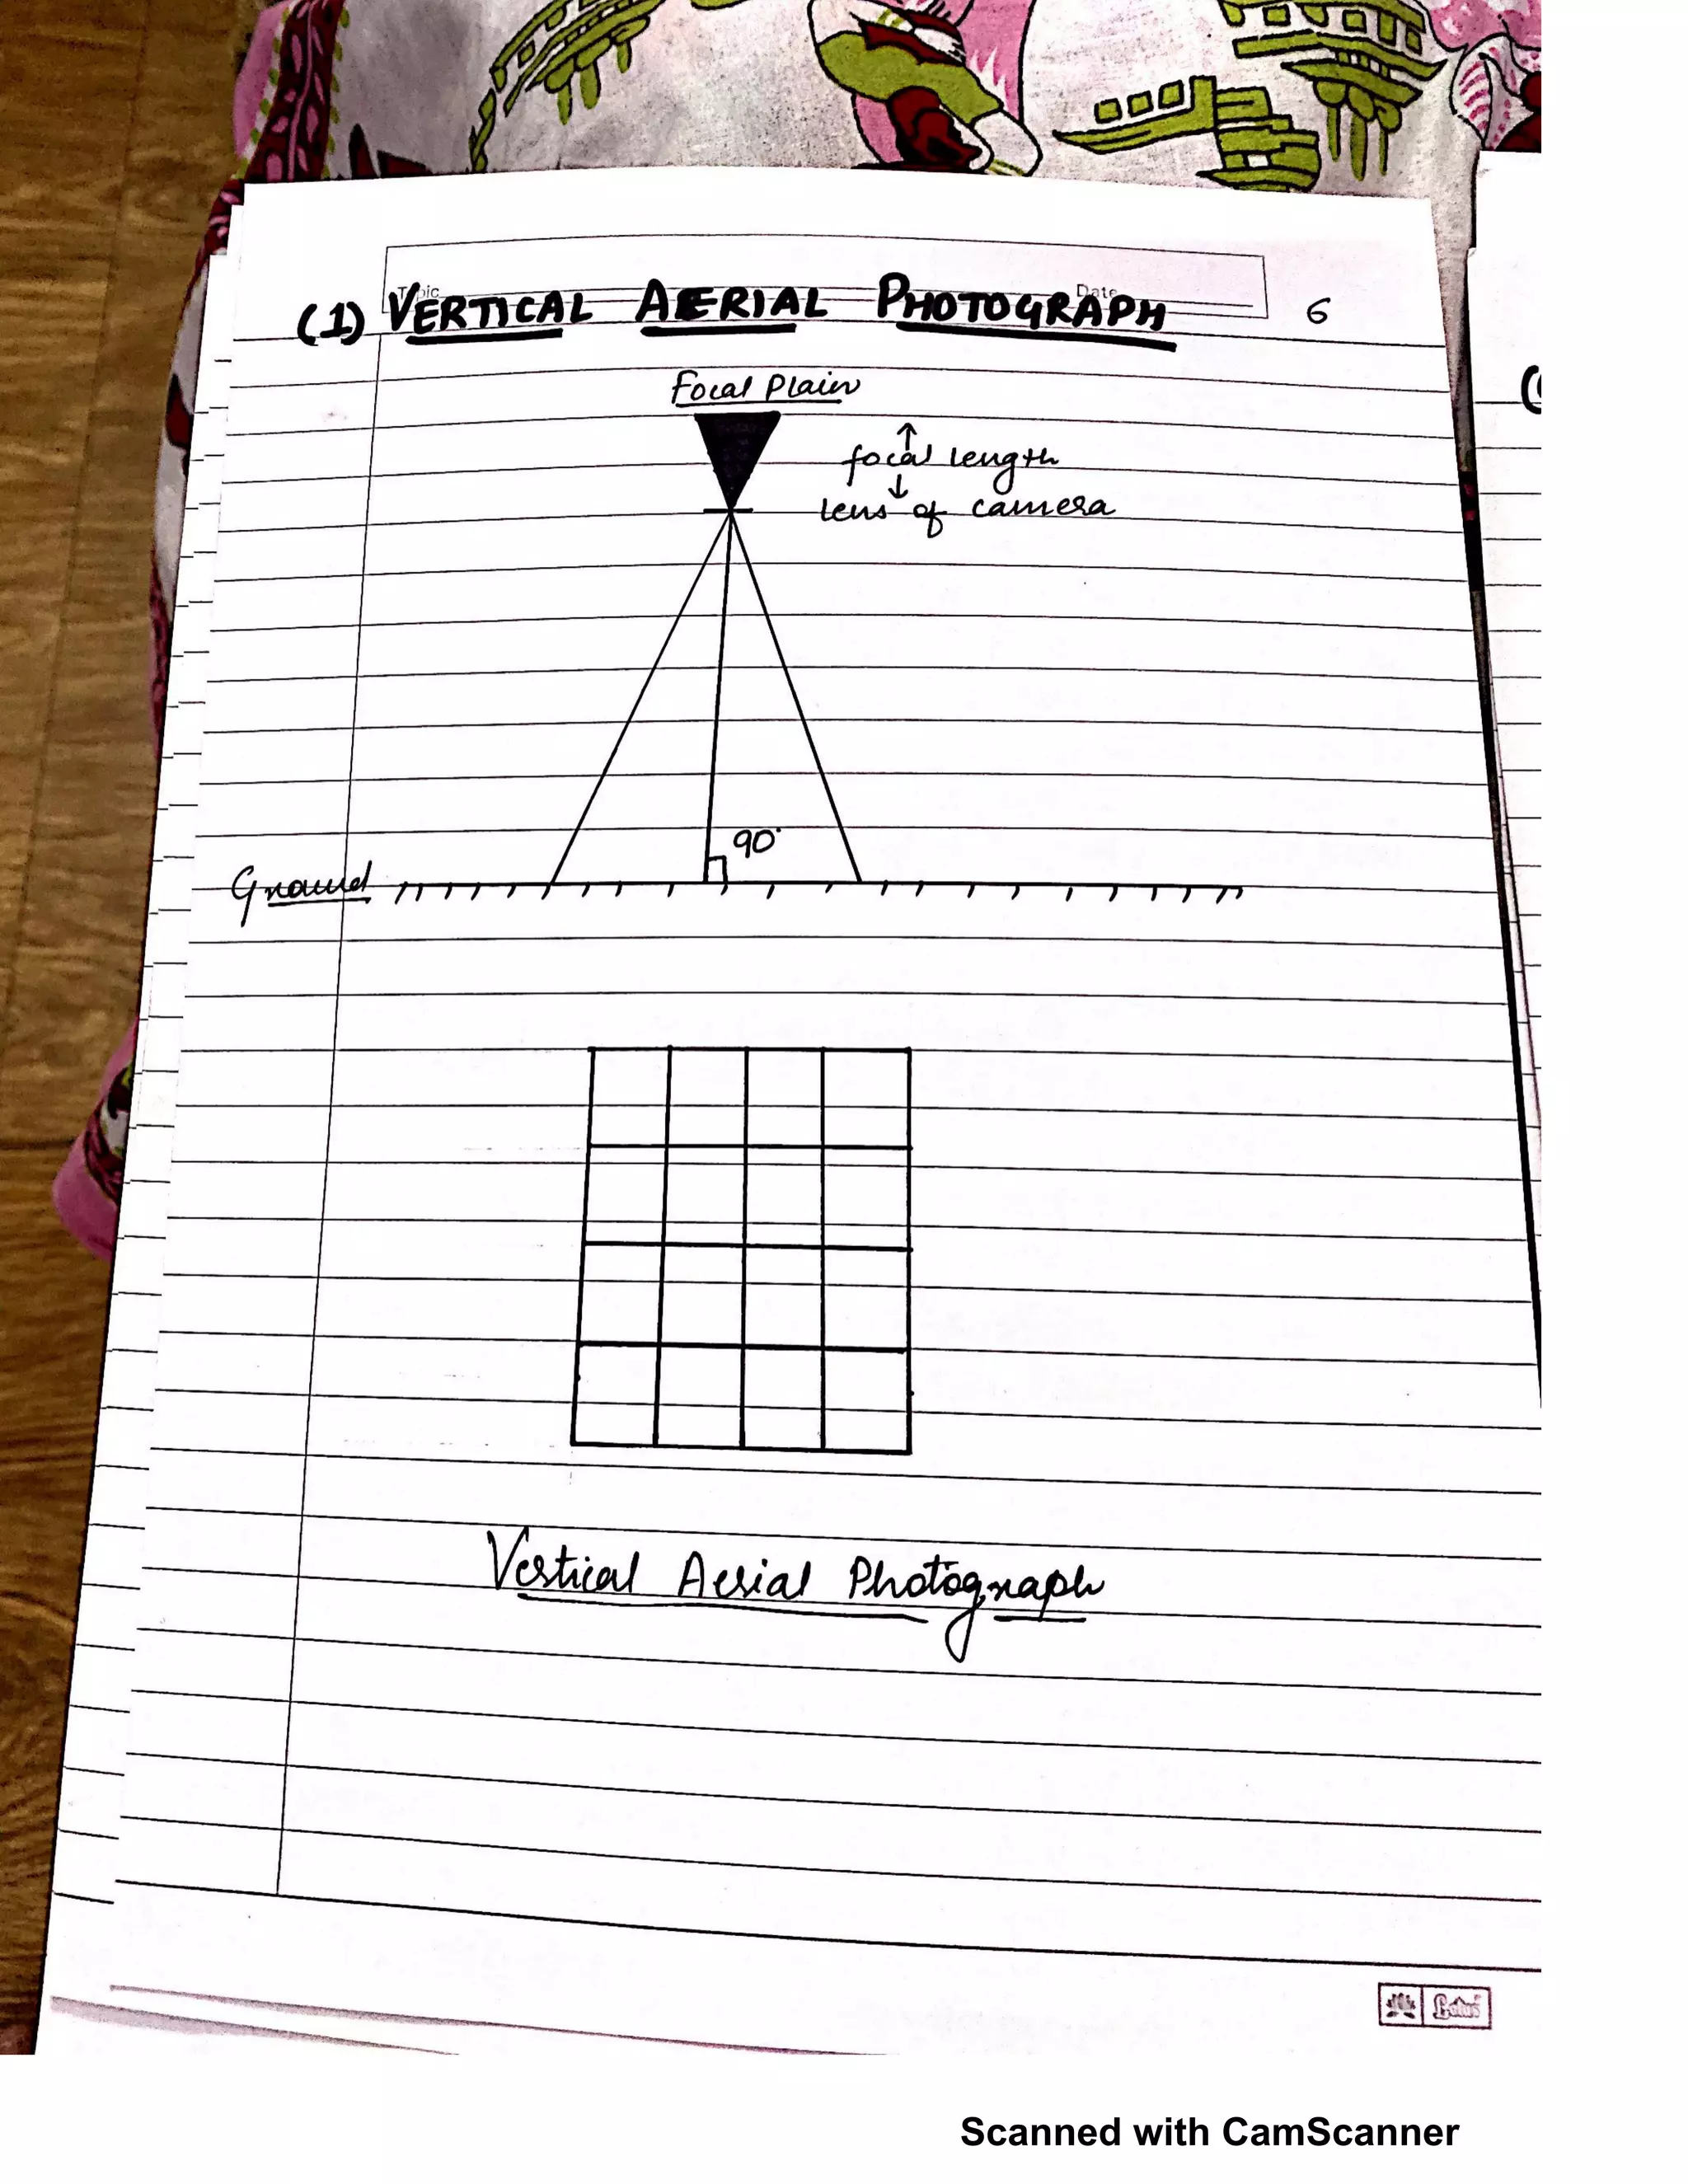 Topic
Date
(1) VERTICAL AERIAL PHOTOGRAPH 6
Focal Plain
focal length
lens of camera
90°
Ground
Vertical Aerial Photograph
Lotus
Scanned with CamScanner